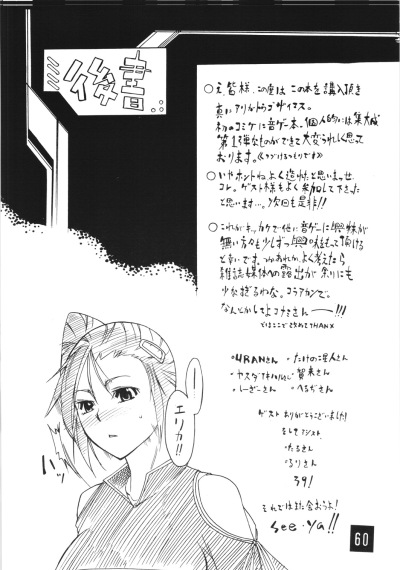 後書
○え、皆様、この度はこの本を購入頂き
真にアリガトウゴザイマス。
初のコミケに音ゲー本、個人的には集大成
第1弾なものができて大変うれしく思って
おります。
○いやホントねよく造れたと思いませぇ
コレ。ゲスト様もよく参加して下さった
と思います…。次回も是非!!
○これがキッカケで他の音ゲーに興味が
無い方々も少しずつ興味もって頂ける
と幸いです。つかあれか、よく考えたら
雑誌媒体への露出が余りにも
少なすぎるねな。コラアカンで。
なんとかしてよコナミさん――!!!
とはここで改めてTHANX
URANさん
たけのこ星人さん
賀来さん
しーざーさん
ゲストありがとうございました!
そしてアシスト
さん
さん
39!
それではまた会おうよ!
see・ya!!
エリカ!!
60